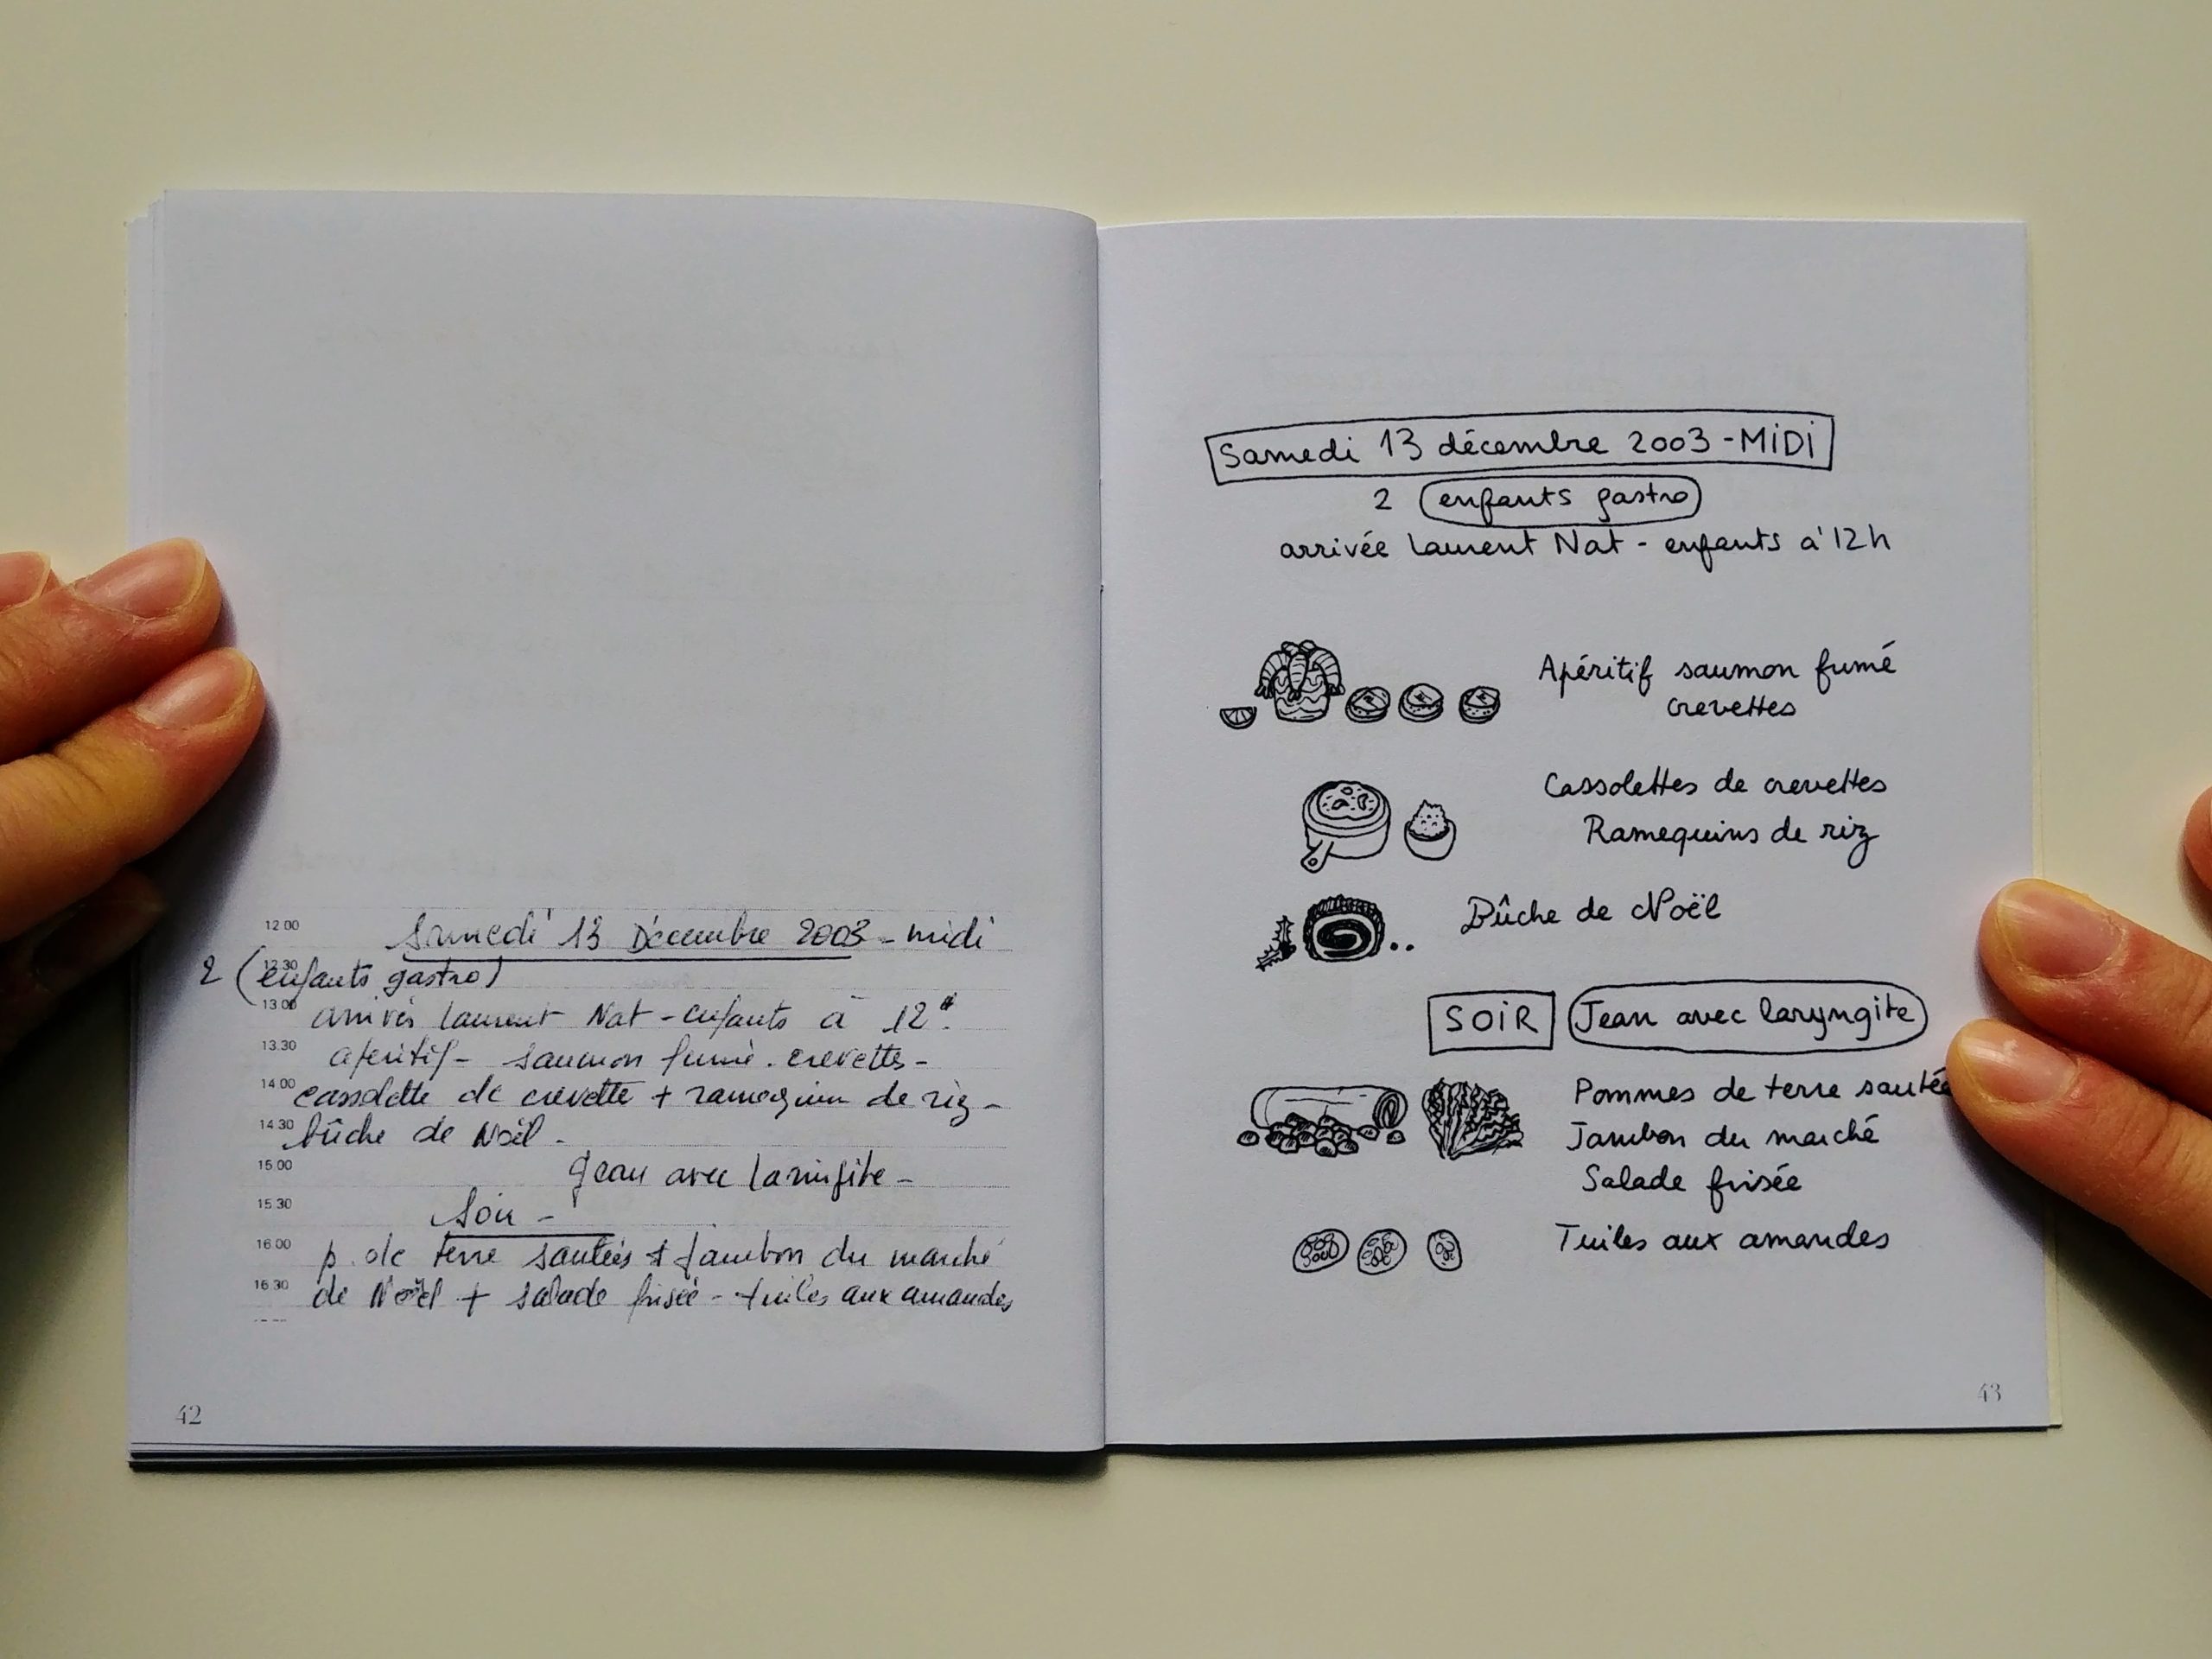 12 00 Samedi 13 Décembre 2003 - midi
12.30 2 (enfants gastro)
13 00 arrivés Laurent Nat - enfants à 12h.
13.30 apéritif - saumon fumé. crevettes -
14 00 cassolette de crevette + ramequin de riz -
14.30 bûche de Noël -
15.00 Jean avec laringite -
15 30 Soir -
16 00 p. de terre sautées + jambon du marché
16 30 de Noël + salade frisée - tuiles aux amandes
42
Samedi 13 décembre 2003 - MiDi
2 enfants gastro
arrivée Laurent Nat - enfants à 12h
Apéritif saumon fumé
crevettes
Cassolettes de crevettes
Ramequins de riz
Bûche de Noël
SOiR Jean avec laryngite
Pommes de terre sautée
Jambon du marché
Salade frisée
Tuiles aux amandes
43